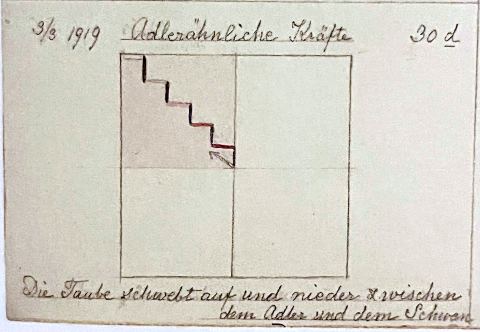 3/3 1919 Adlerähnliche Kräfte 30 d
Die Taube schwebt auf und nieder zwischen
dem Adler und dem Schwan